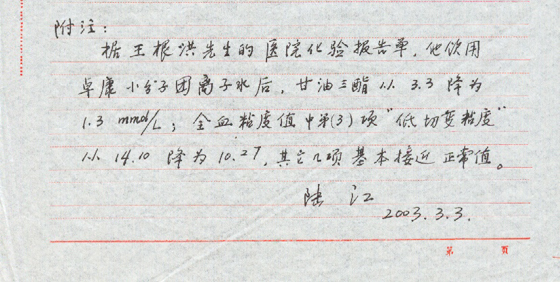 附注：
据王根洪先生的医院化验报告单，他饮用
卓康小分子团离子水后，甘油三酯从3.3降为
1.3 mmol/L；全血粘度值中第(3)项“低切变粘度”
从14.10降为10.27，其它几项基本接近正常值。
陆江
2003.3.3.
第 页